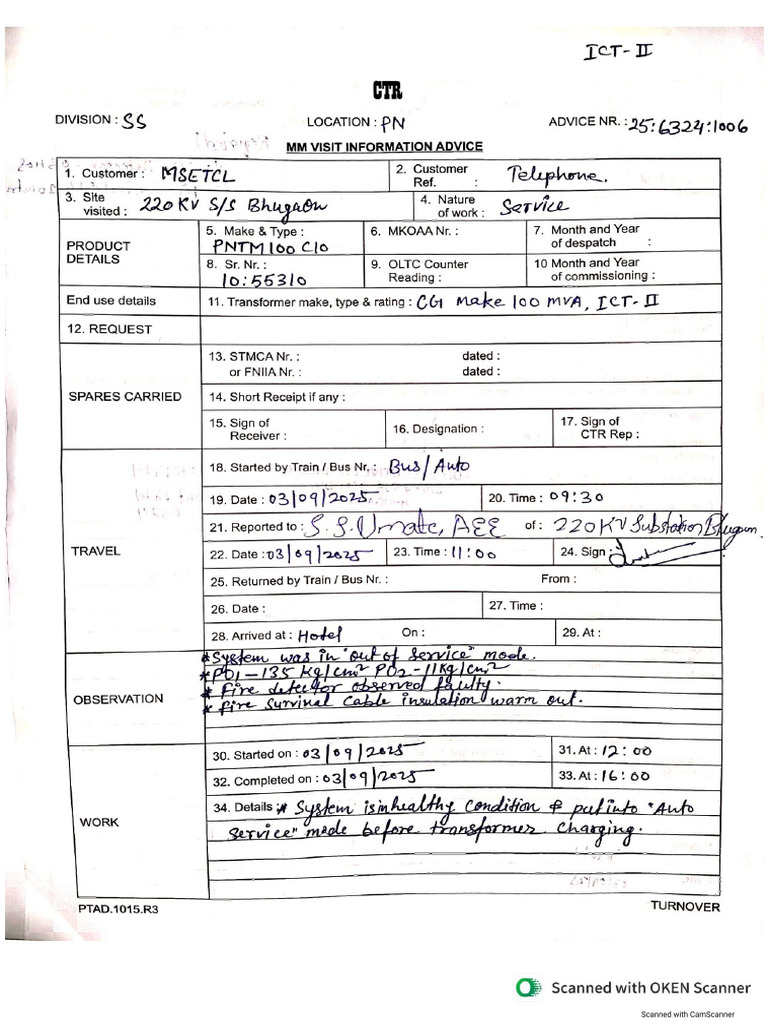 ICT-II
CTR
DIVISION : SS
LOCATION : PN
ADVICE NR. : 25:6324:1006
MM VISIT INFORMATION ADVICE
1. Customer : MSETCL
2. Customer Ref. : Telephone.
3. Site visited : 220 KV S/S Bhugaon
4. Nature of work : Service
PRODUCT DETAILS
5. Make & Type : PNTM100 C10
6. MKOAA Nr. :
7. Month and Year of despatch :
8. Sr. Nr. : 10:55310
9. OLTC Counter Reading :
10 Month and Year of commissioning :
End use details
11. Transformer make, type & rating : CG Make 100 MVA, ICT-II
12. REQUEST
SPARES CARRIED
13. STMCA Nr. : dated :
or FNIIA Nr. : dated :
14. Short Receipt if any :
15. Sign of Receiver :
16. Designation :
17. Sign of CTR Rep :
TRAVEL
18. Started by Train / Bus Nr. : Bus/Auto
19. Date : 03/09/2025
20. Time : 09:30
21. Reported to : S. S. Umate, AEE of : 220KV Substation Bhugaon
22. Date : 03/09/2025
23. Time : 11:00
24. Sign :
25. Returned by Train / Bus Nr. : From :
26. Date :
27. Time :
28. Arrived at : Hotel On :
29. At :
OBSERVATION
* System was in "out of service" mode.
* PO1 - 135 Kg/cm² PO2 - 11Kg/cm²
* Fire detector observed faulty.
* Fire survinal cable insulation warm out.
WORK
30. Started on : 03/09/2025
31. At : 12:00
32. Completed on : 03/09/2025
33. At : 16:00
34. Details * System is in healthy condition & put into "Auto
Service" mode before transformer charging.
PTAD.1015.R3
TURNOVER
Scanned with OKEN Scanner
Scanned with CamScanner